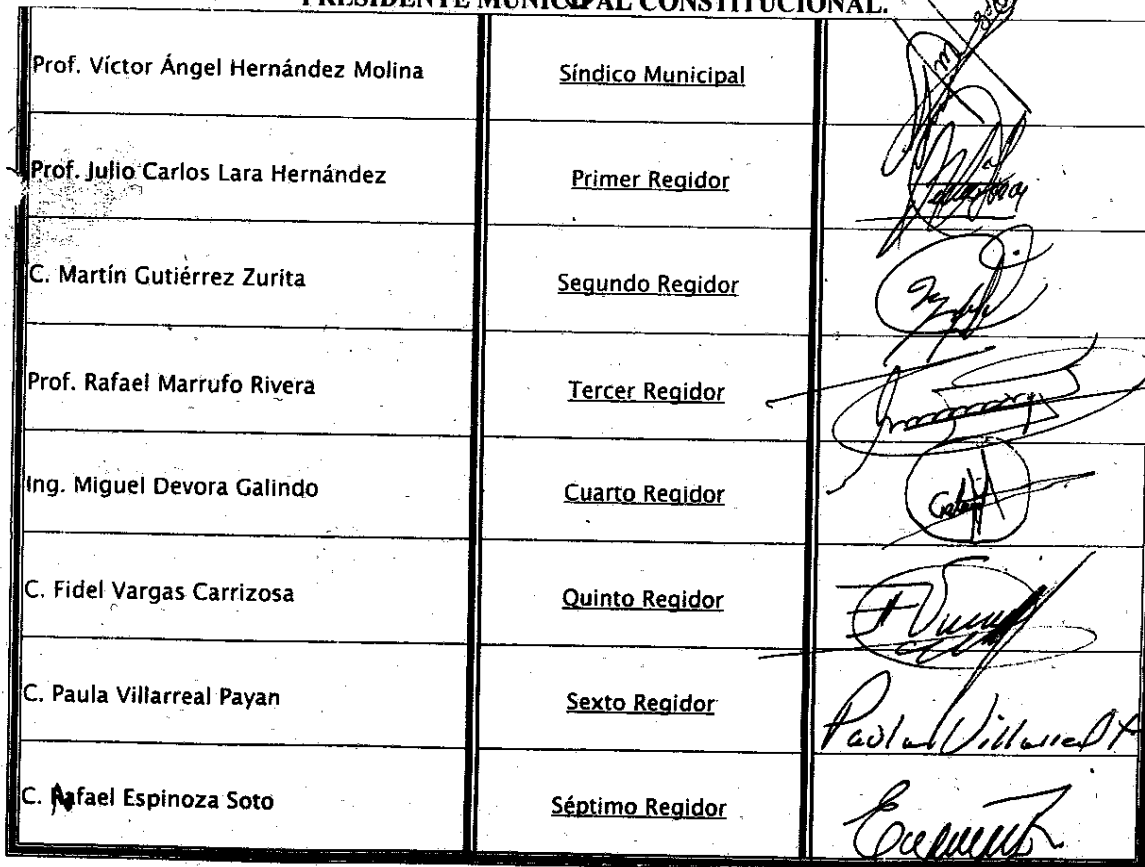 PRESIDENTE MUNICIPAL CONSTITUCIONAL.
Prof. Víctor Ángel Hernández Molina Síndico Municipal
Prof. Julio Carlos Lara Hernández Primer Regidor
C. Martín Gutiérrez Zurita Segundo Regidor
Prof. Rafael Marrufo Rivera Tercer Regidor
Ing. Miguel Devora Galindo Cuarto Regidor
C. Fidel Vargas Carrizosa Quinto Regidor
C. Paula Villarreal Payan Sexto Regidor Paula Villarreal P
C. Rafael Espinoza Soto Séptimo Regidor